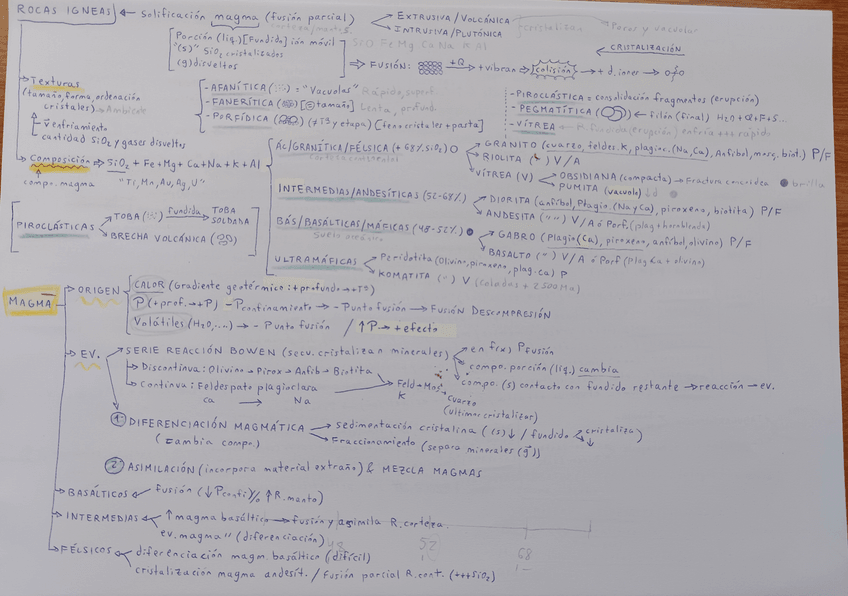 ROCAS IGNEAS ← Solificación magma (fusión parcial)
EXTRUSIVA/VOLCÁNICA
INTRUSIVA/PLUTÓNICA
cristalizan
Pocas y vacuolar
Porción (liq.) [Fundida] ión móvil
"(s)" SiO2 cristalizados
(g) disueltos
SiO Fe Mg Ca Na K Al
← CRISTALIZACIÓN
⇒ FUSIÓN: +Q → +vibran → colisión → + d.inter →
Texturas
(tamaño, forma, ordenación
cristales) → Ambiente
v enfriamiento
cantidad SiO2 y gases disueltos
- AFANÍTICA = "Vacuolas" Rápido, superf.
- FANERÍTICA (≡ tamaño) Lenta, profundo
- PORFÍDICA (≠ Tª y etapa) [fenocristales + pasta]
- PIROCLÁSTICA = consolidación fragmentos (erupción)
- PEGMATÍTICA ← filón (final) H2O + Cl + F + S...
- VÍTREA ← fundida (erupción) enfría + rápido
Composición ⇒ SiO2 + Fe + Mg + Ca + Na + K + Al
compo. magma "Ti, Mn, Au, Ag, U"
ÁC/GRANÍTICA/FÉLSICA (+68% SiO2)
GRANITO (cuarzo, feldes. K, plagioc. (Na, Ca), Anfíbol, mosq. biot.) P/F
RIOLITA (") V/A
VÍTREA (V)
OBSIDIANA (compacta) → Fractura concoidea brillo
PUMITA (vacuola) ↓d
INTERMEDIAS/ANDESÍTICAS (52-68%)
DIORITA (anfíbol, Plagio. (Na y Ca), piroxeno, biotita) P/F
ANDESITA (" ") V/A ó Porf. (plag + hornblenda)
PIROCLÁSTICAS
TOBA fundida → TOBA SOLDADA
BRECHA VOLCÁNICA
BÁS/BASÁLTICAS/MÁFICAS (48-52%)
Suelo oceánico
GABRO (Plagio (Ca), piroxeno, anfíbol, olivino) P/F
BASALTO (") V/A ó Porf (Plag Ca + olivino)
ULTRAMÁFICAS
Peridotita (Olivino, piroxeno, plag. ca) P
KOMATITA (") V (coladas + 2500 Ma)
MAGMA
ORIGEN
CALOR (Gradiente geotérmico: + profundo → Tª)
P (+prof. → +P) - P confinamiento → - Punto fusión → FUSIÓN DESCOMPRESIÓN
Volátiles (H2O, ...) → - Punto fusión / ↑P → + efecto
EV.
SERIE REACCIÓN BOWEN (secu. cristalizan minerales)
en f(x) P fusión
compo. porción (liq.) cambia
compo. (s) contacto con fundido restante → reacción → ev.
Discontinua: Olivino → Pirox → Anfib → Biotita
Continua: Feldespato plagioclasa
Ca → Na
Feld → Mos → cuarzo
K
(últimos cristalizar)
1 DIFERENCIACIÓN MAGMÁTICA
(= cambia compo.)
sedimentación cristalina ((s)↓ / fundido cristaliza)
Fraccionamiento (separa minerales (g))
2 ASIMILACIÓN (incorpora material extraño) & MEZCLA MAGMAS
BASÁLTICOS ← fusión (↓Pconfi) % ↑ R. manto)
INTERMEDIAS
↑ magma basáltico → fusión y asimila R. corteza
ev. magma " (diferenciación)
48 52 68
FÉLSICOS
diferenciación magm. basáltico (difícil)
cristalización magma andesít. / Fusión parcial R. cont. (+++SiO2)